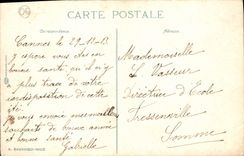 CARTE POSTALE
Correspondance
Adresse
Cannes le 29-12-13
J'espère vous êtes en
bonne santé, qu'il n'y a
plus trace de votre
indisposition de cet
été.
Je vous envoie mes meilleurs
souhaits de bonne année
et bonne santé.
Gabrielle
Mademoiselle
L. Vasseur
Directrice d'École
Fressenville
Somme